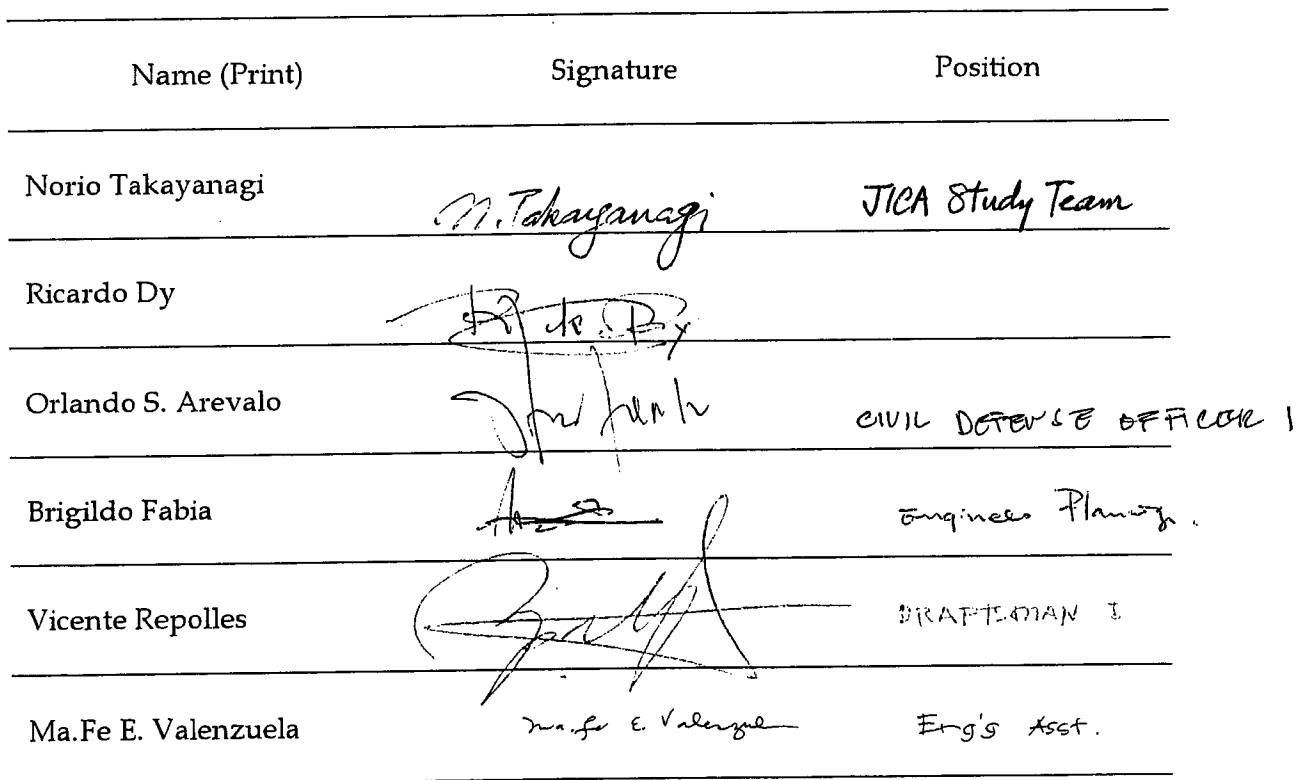 Name (Print) Signature Position
Norio Takayanagi N. Takayanagi JICA Study Team
Ricardo Dy
Orlando S. Arevalo CIVIL DEFENSE OFFICER I
Brigildo Fabia Engineer Planning
Vicente Repolles DRAFTSMAN I
Ma.Fe E. Valenzuela Ma. Fe E. Valenzuela Eng'g Asst.